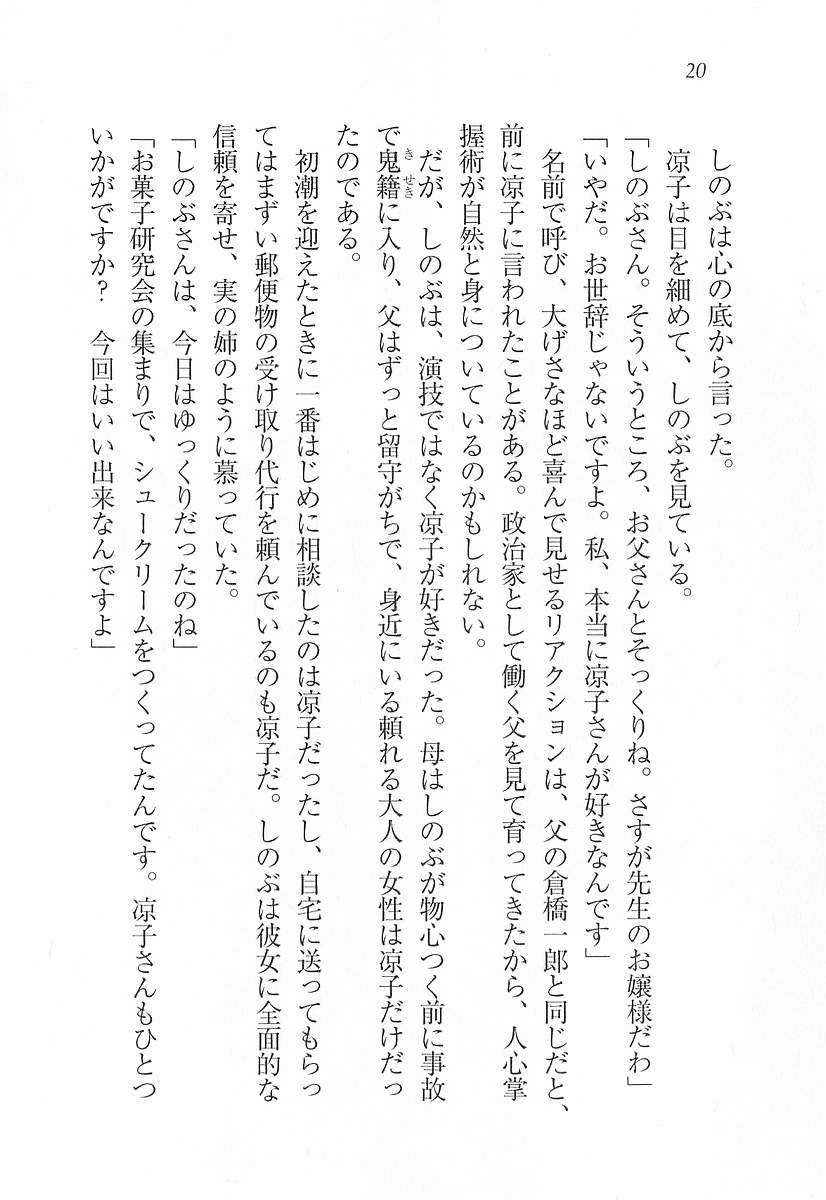 20
しのぶは心の底から言った。
凉子は目を細めて、しのぶを見ている。
「しのぶさん。そういうところ、お父さんとそっくりね。さすが先生のお嬢様だわ」
「いやだ。お世辞じゃないですよ。私、本当に凉子さんが好きなんです」
名前で呼び、大げさなほど喜んで見せるリアクションは、父の倉橋一郎と同じだと、
前に凉子に言われたことがある。政治家として働く父を見て育ってきたから、人心掌
握術が自然と身についているのかもしれない。
だが、しのぶは、演技ではなく凉子が好きだった。母はしのぶが物心つく前に事故
で鬼籍に入り、父はずっと留守がちで、身近にいる頼れる大人の女性は凉子だけだっ
たのである。
初潮を迎えたときに一番はじめに相談したのは凉子だったし、自宅に送ってもらっ
てはまずい郵便物の受け取り代行を頼んでいるのも凉子だ。しのぶは彼女に全面的な
信頼を寄せ、実の姉のように慕っていた。
「しのぶさんは、今日はゆっくりだったのね」
「お菓子研究会の集まりで、シュークリームをつくってたんです。凉子さんもひとつ
いかがですか？　今回はいい出来なんですよ」